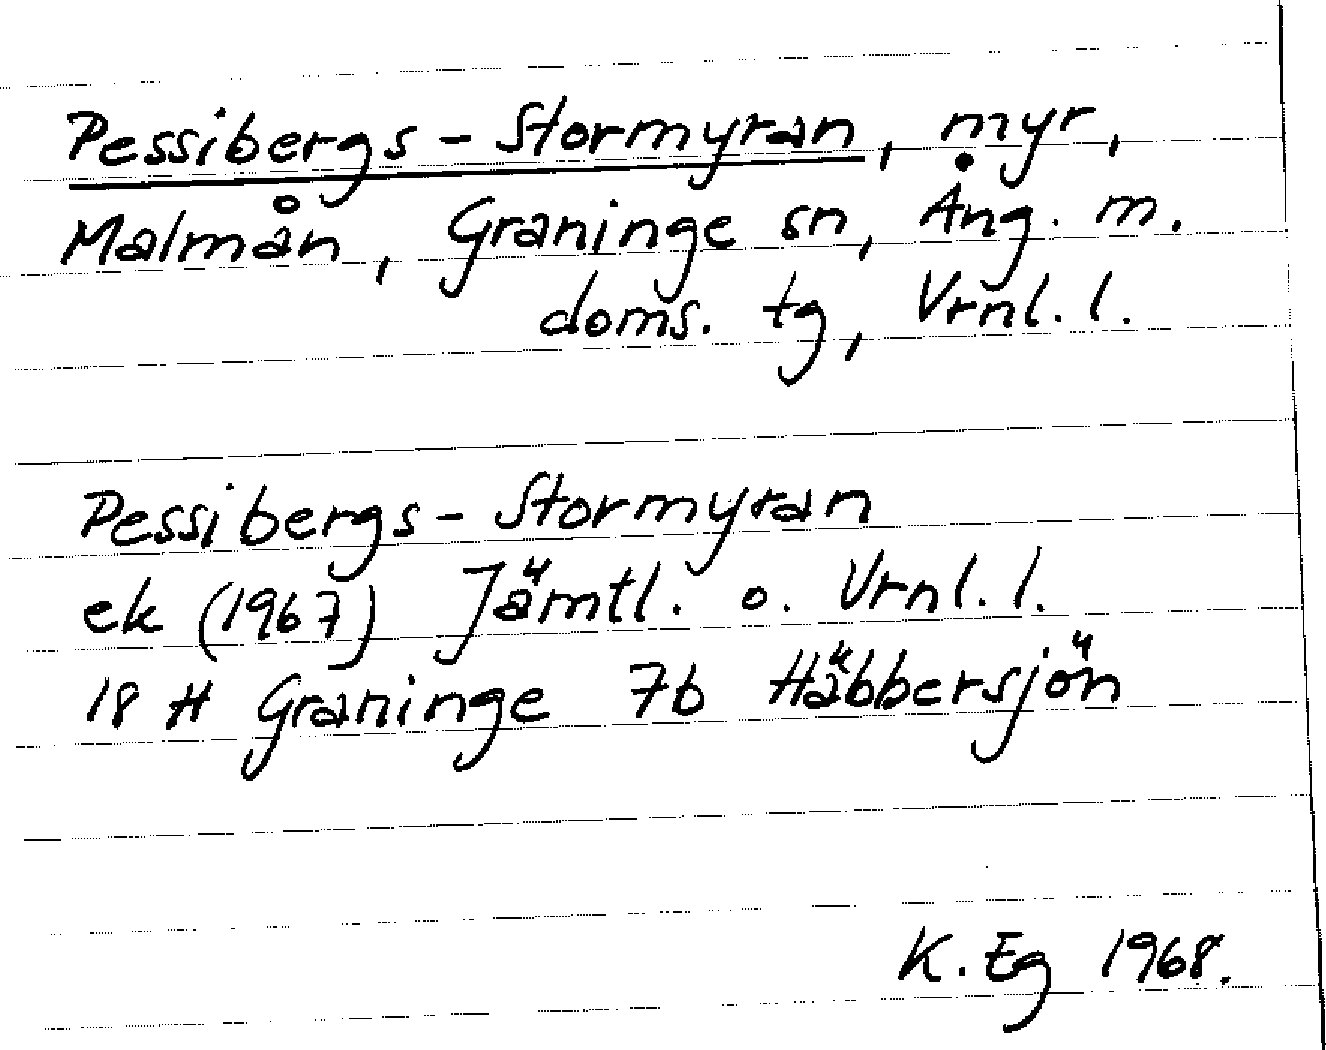 Pessibergs - Stormyran, myr,
Malmån, Graninge sn, Ång. m.
doms. tg, Vrnl. l.
Pessibergs - Stormyran
ek (1967) Jämtl. o. Vrnl. l.
18 H Graninge 7b Häbbersjön
K. Eg 1968.